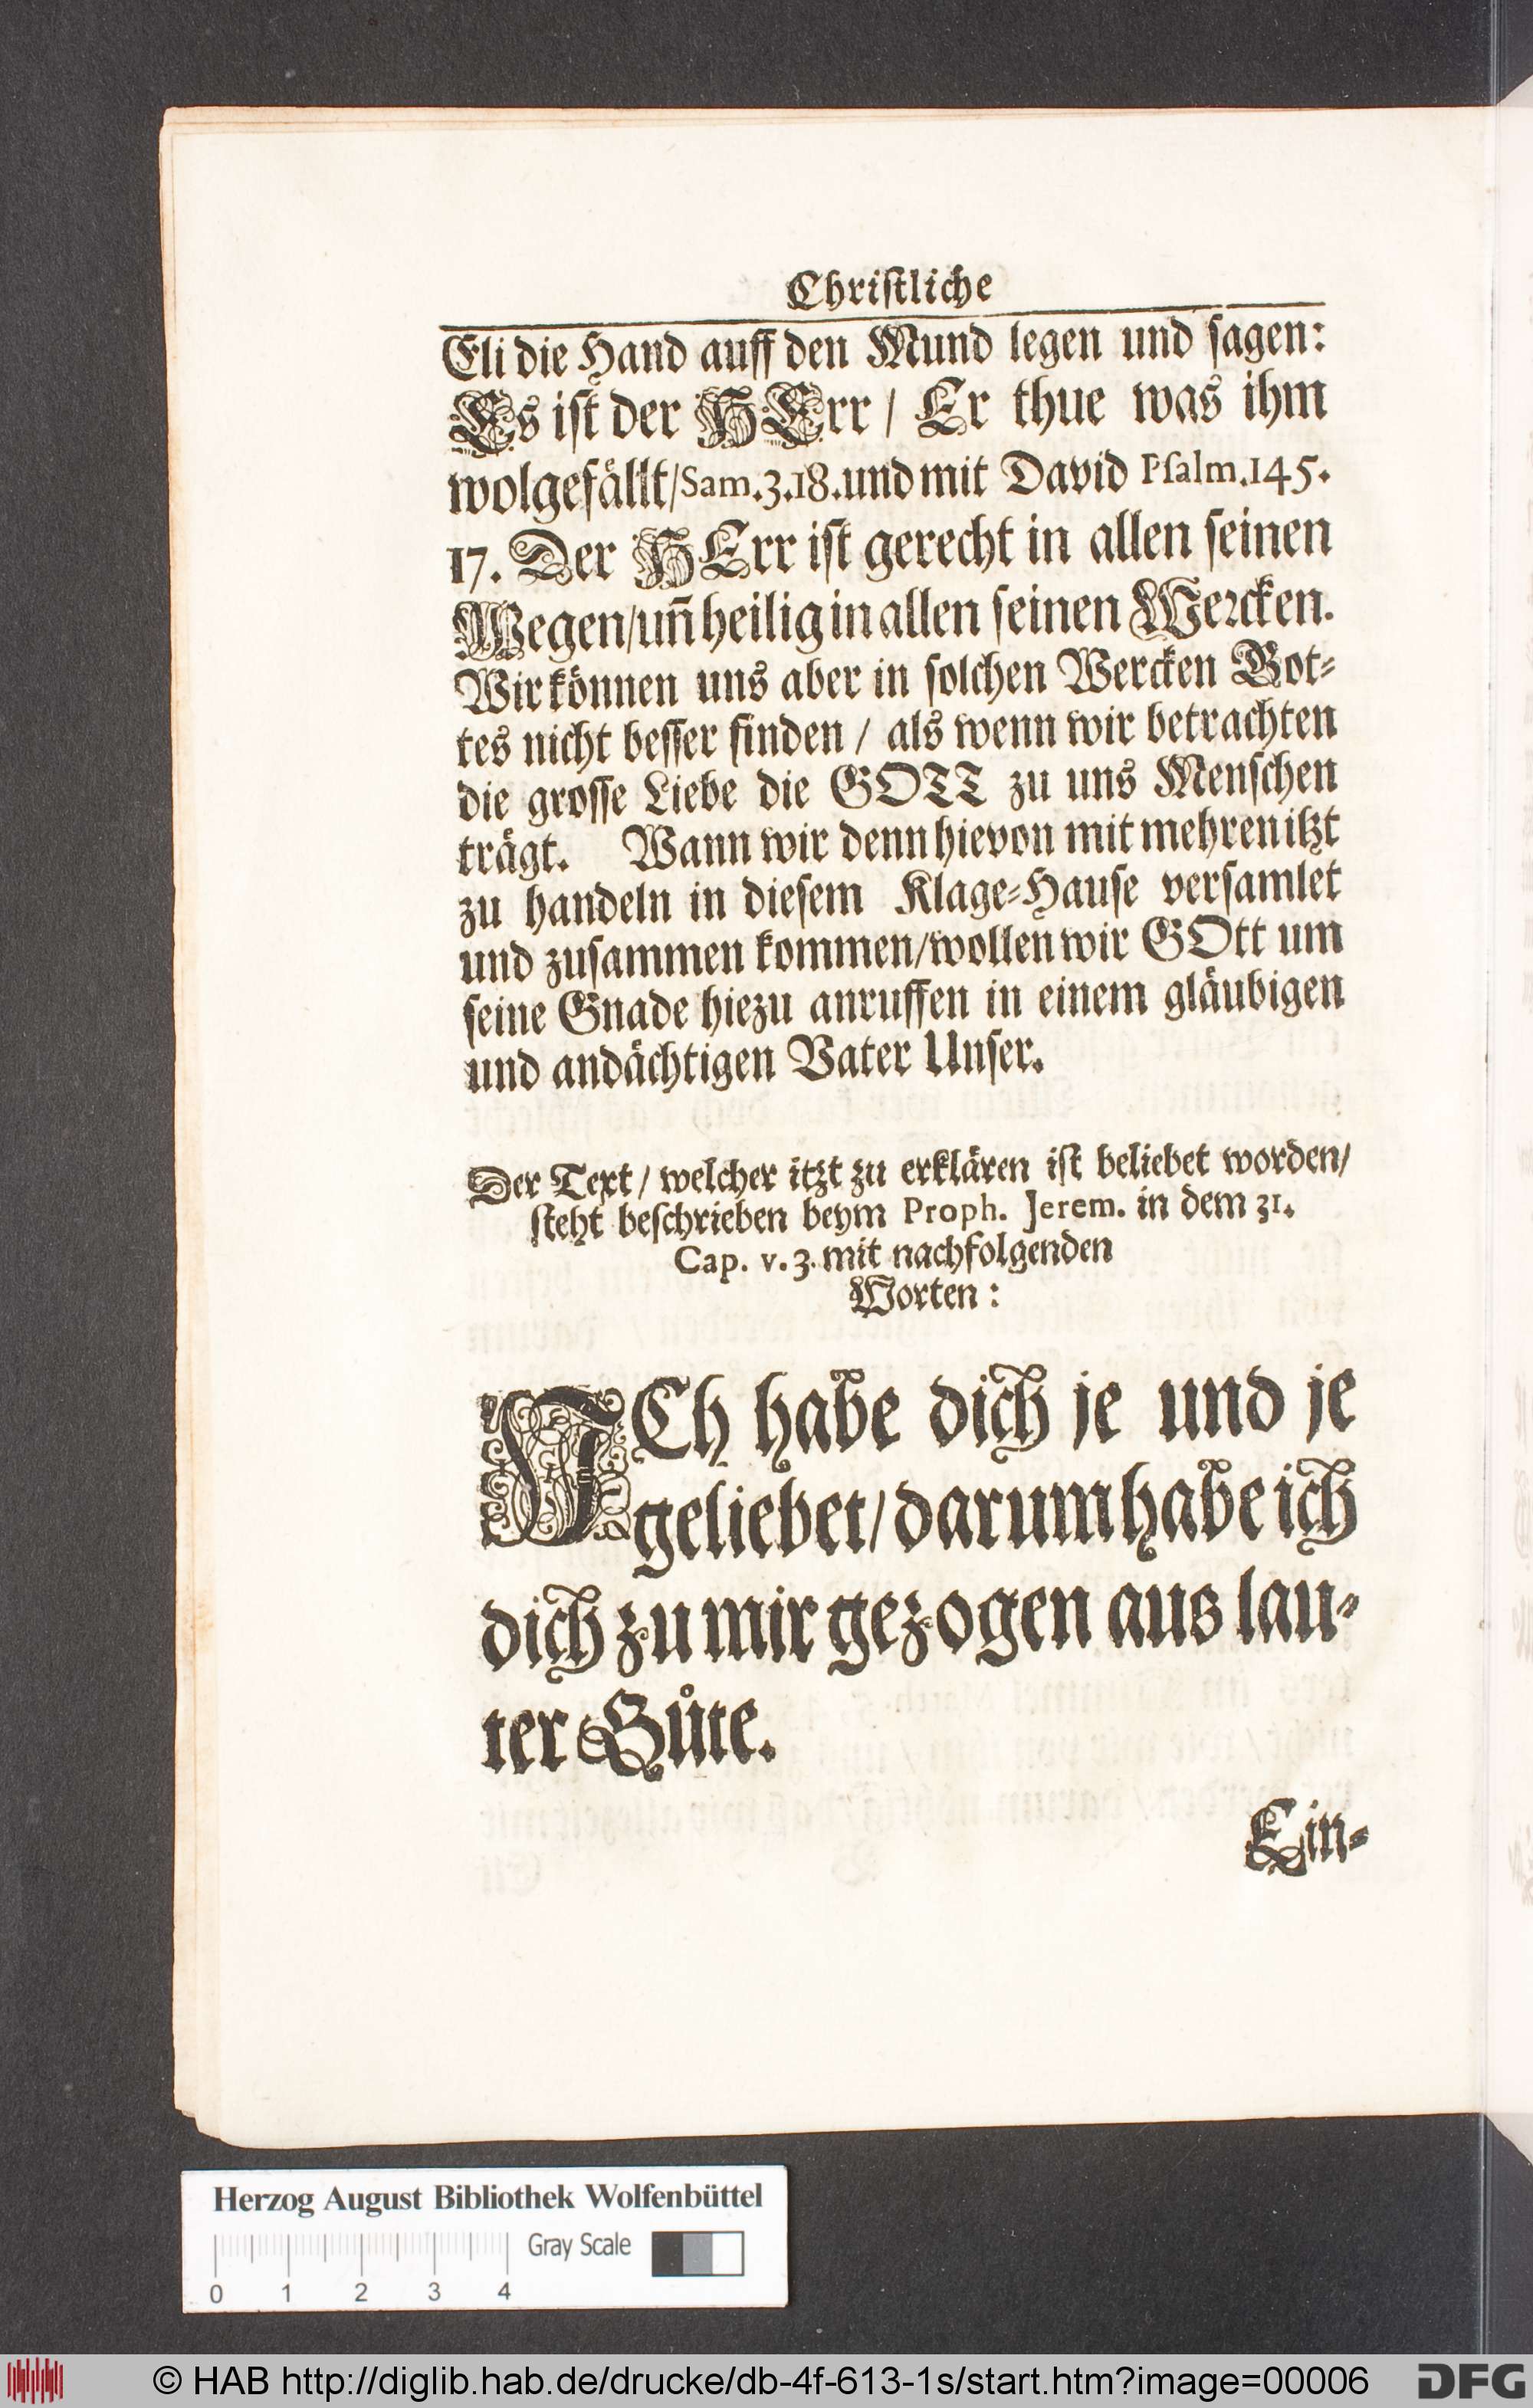 Christliche
Eli die Hand auff den Mund legen und sagen:
Es ist der HErr / Er thue was ihm
wolgefällt/Sam.3.18.und mit David Psalm.145.
17. Der HErr ist gerecht in allen seinen
Wegen/uñ heilig in allen seinen Wercken.
Wir können uns aber in solchen Wercken Got-
tes nicht besser finden / als wenn wir betrachten
die grosse Liebe die GOTT zu uns Menschen
trägt. Wann wir denn hievon mit mehren itzt
zu handeln in diesem Klage-Hause versamlet
und zusammen kommen/wollen wir GOtt um
seine Gnade hiezu anruffen in einem gläubigen
und andächtigen Vater Unser.
Der Text / welcher itzt zu erklären ist beliebet worden/
steht beschrieben beym Proph. Jerem. in dem 31.
Cap. v. 3. mit nachfolgenden
Worten :
ICh habe dich je und je
geliebet/darum habe ich
dich zu mir gezogen aus lau-
ter Güte.
Ein-
Herzog August Bibliothek Wolfenbüttel
Gray Scale
0 1 2 3 4
© HAB http://diglib.hab.de/drucke/db-4f-613-1s/start.htm?image=00006
DFG